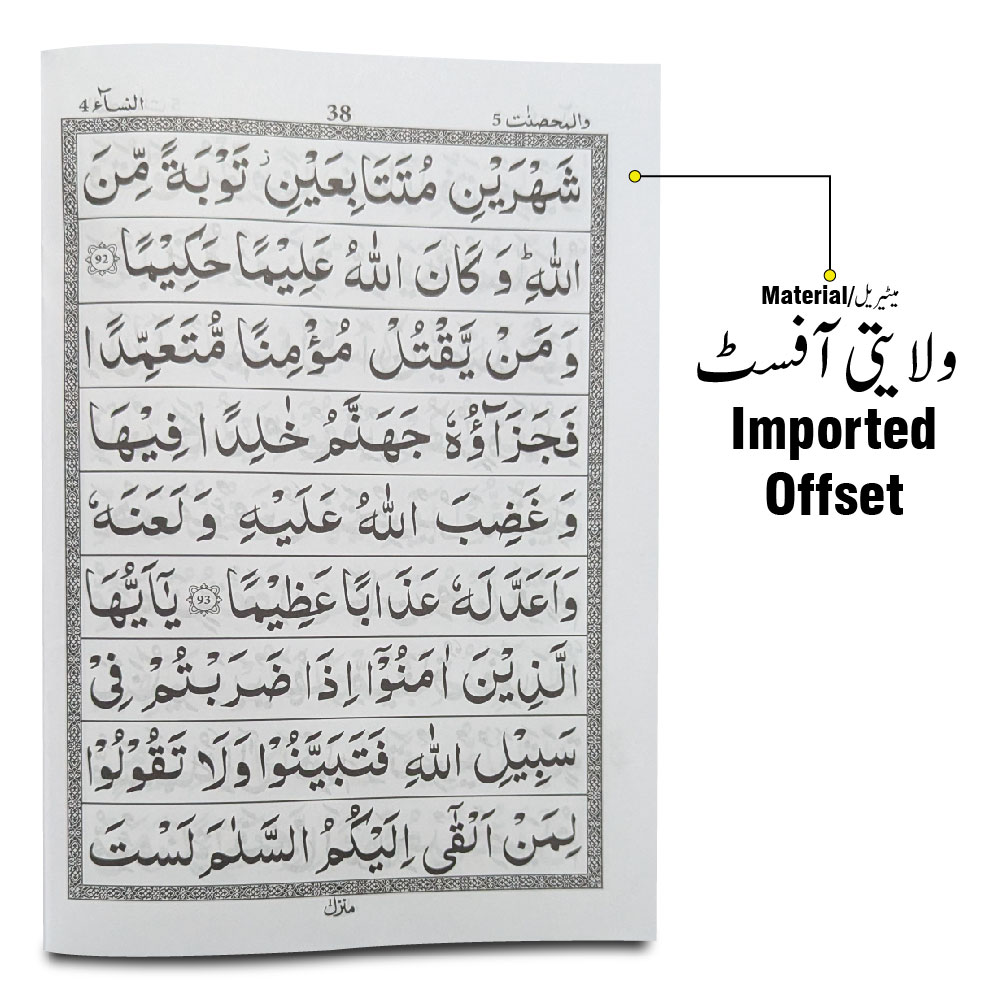 النسآء 4
38
والمحصنٰت 5
شَهْرَيْنِ مُتَتَابِعَيْنِ ز تَوْبَةً مِّنَ
اللّٰهِ ؕ وَ كَانَ اللّٰهُ عَلِيْمًا حَكِيْمًا 92
وَ مَنْ يَّقْتُلْ مُؤْمِنًا مُّتَعَمِّدًا
فَجَزَآؤُهٗ جَهَنَّمُ خٰلِدًا فِيْهَا
وَ غَضِبَ اللّٰهُ عَلَيْهِ وَ لَعَنَهٗ
وَاَعَدَّ لَهٗ عَذَابًا عَظِيْمًا 93 يٰۤاَيُّهَا
الَّذِيْنَ اٰمَنُوْۤا اِذَا ضَرَبْتُمْ فِيْ
سَبِيْلِ اللّٰهِ فَتَبَيَّنُوْا وَلَا تَقُوْلُوْا
لِمَنْ اَلْقٰۤى اِلَيْكُمُ السَّلٰمَ لَسْتَ
منزل
Material/میٹیریل
ولایتی آفسٹ
Imported
Offset